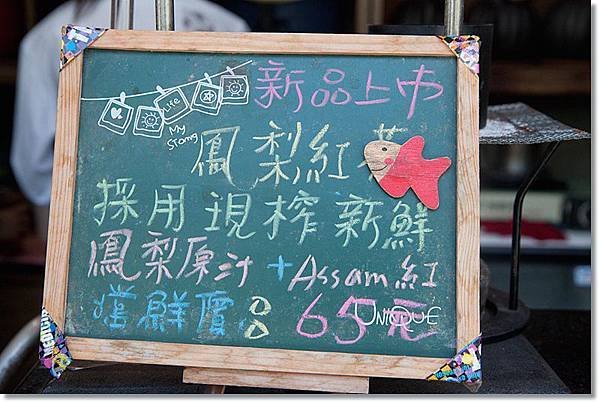 新品上市
Life
My
Story
鳳梨紅茶
採用現榨新鮮
鳳梨原汁+Assam紅
嚐鮮價:65元
UNIQUE